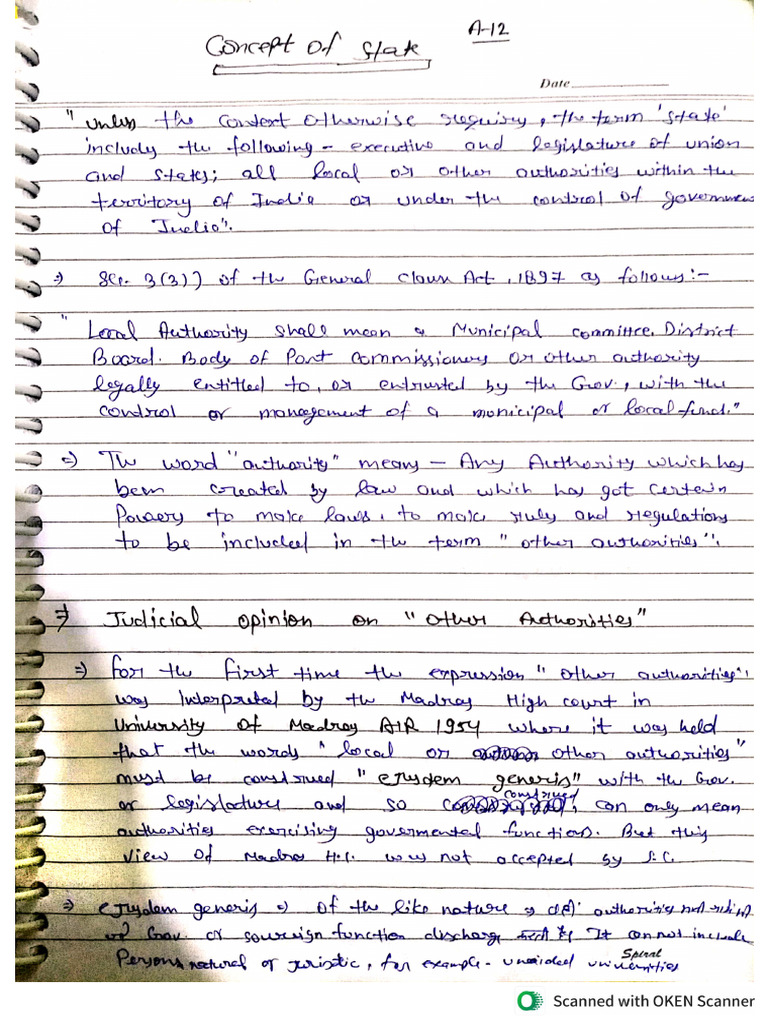 A-12
Concept of State
Date
"Unless the context otherwise requiry, the term 'state'
includy the following - executive and legislature of union
and states; all local or other authorities within the
territory of India or under the control of governmen
of India".
⇒ Sec. 3(3)) of the General Claun Act, 1897 as follows:-
"Local Authority shall mean a Municipal committee. District
Board. Body of Port Commissionery or other authority
legally entitled to, or entrusted by the Gov., with the
control or management of a municipal or local fund."
⇒ The word "authority" means - Any Authority which has
been created by law and which has got certain
Powery to make laws, to make ruly and regulations
to be included in the term "other authorities".
⇒ Judicial opinion on "Other Authorities"
⇒ for the first time the expression "other authorities"
way Interpreted by the Madray High court in
University of Madray AIR 1954 where it way held
that the words "local or other authorities"
must be construed "ejusdem generis" with the Gov.
or legislature and so construed, can only mean
authorities exercising govermental functions. But this
view of Madras H.C. was not accepted by S.C.
⇒ ejusdem generis ⇒ Of the like nature ⇒ authorities
Gov. or soureign function discharge It can not include
Persons natural or juristic, for example - unaided universities
Spiral
Scanned with OKEN Scanner